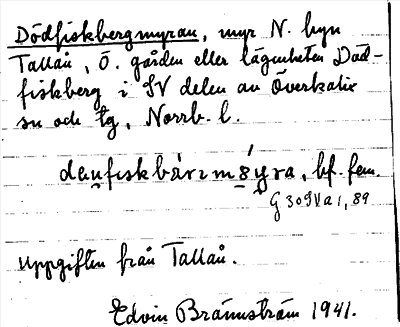 Dödfiskbergmyran, myr N. byn
Tallån, Ö. gården eller lägenheten Död-
fiskberg i SV delen av Överkalix
sn och tg, Norrb. l.
bf. fem.
G 30 SV a 1, 89
Uppgiften från Tallån.
Edvin Brännström 1941.